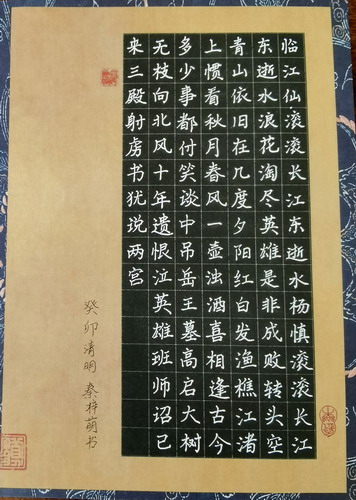 临江仙滚滚长江东逝水杨慎滚滚长江
东逝水浪花淘尽英雄是非成败转头空
青山依旧在几度夕阳红白发渔樵江渚
上惯看秋月春风一壶浊酒喜相逢古今
多少事都付笑谈中吊岳王墓高启大树
无枝向北风十年遗恨泣英雄班师诏已
来三殿射虏书犹说两宫
癸卯清明秦梓萌书